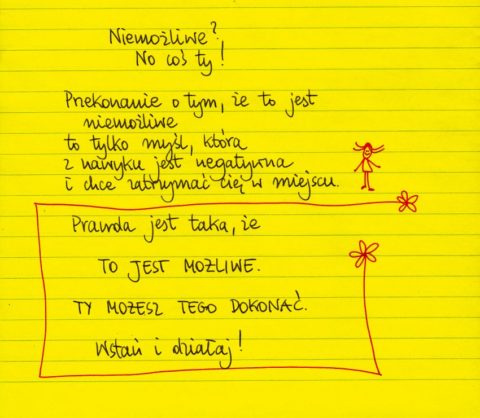 Niemożliwe?
No coś ty!
Przekonanie o tym, że to jest
niemożliwe
to tylko myśl, która
z nawyku jest negatywna
i chce zatrzymać cię w miejscu.
Prawda jest taka, że
TO JEST MOŻLIWE.
TY MOŻESZ TEGO DOKONAĆ.
Wstań i działaj!